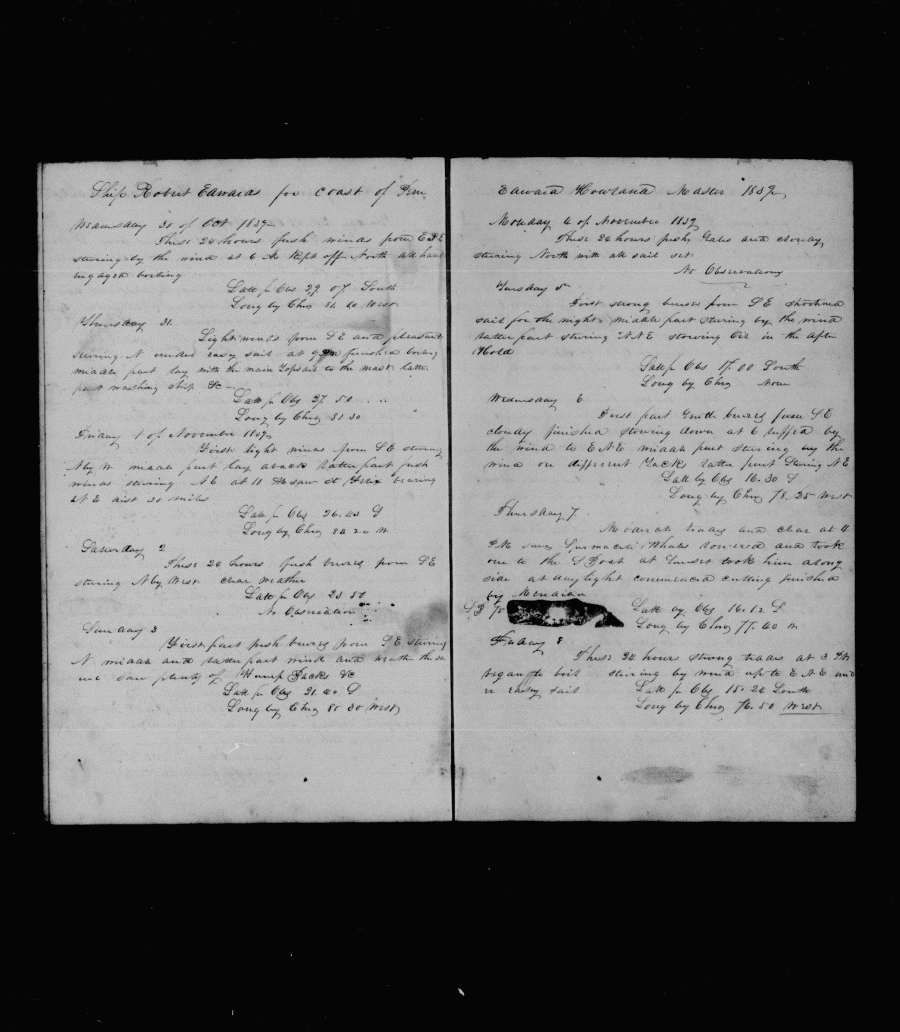 Ship Robert Edwards for coast of Peru
Wednesday 30 of Oct 1839
These 24 hours fresh winds from ESE
stearing by the wind at 6 AM kept off North all hands
engaged boiling
Latt p Obs 29 07 South
Long by Chro 81 10 West
Thursday 31
Light winds from SE and pleasant
stearing N under easy sail at 9 PM finished boiling
middle part lay with the main topsail to the mast latter
part washing ship &c
Latt p Obs 27 50 " "
Long by Chro 81 30
Friday 1 of November 1839
First light winds from SE stearing
N by W middle part lay aback latter part fresh
winds stearing NE at 10 AM saw St Felix bearing
NE dist 30 miles
Latt p Obs 26 43 S
Long by Chro 80 20 W
Saturday 2
These 24 hours fresh breezes from SE
stearing N by West clear weather
Latt p Obs 23 50
No Observation
Sunday 3
First part fresh breezes from SE stearing
N middle and latter part wind and weather the same
saw plenty of Hump Backs &c
Latt p Obs 21 40 S
Long by Chro 80 30 West
Edward Howland Master 1839
Monday 4 of November 1839
These 24 hours fresh Gales and cloudy
stearing North with all sail set
No Observations
Tuesday 5
First strong breezes from SE shortened
sail for the night middle part stearing by the wind
latter part stearing NNE stowing Oil in the After
Hold
Latt p Obs 17.00 South
Long by Chro None
Wednesday 6
First part Good breezes from SE
cloudy finished stowing down at 6 luffed by
the wind to ENE middle part stearing by the
wind on different Tacks latter part Stearing NE
Latt by Obs 16.30 S
Long by Chro 78.25 West
Thursday 7
Moderate trades and clear at 4
PM saw Spermaceti Whales lowered and took
one to the S Boat at Sunset took him along
side at daylight commenced cutting finished
by Meridian
SB 70
Latt by Obs 16.12 S
Long by Chro 77.40 W
Friday 8
These 24 hours strong trades at 3 PM
began to boil stearing by wind up to ENE
easy sail
Latt p Obs 15.20 South
Long by Chro 76.50 West